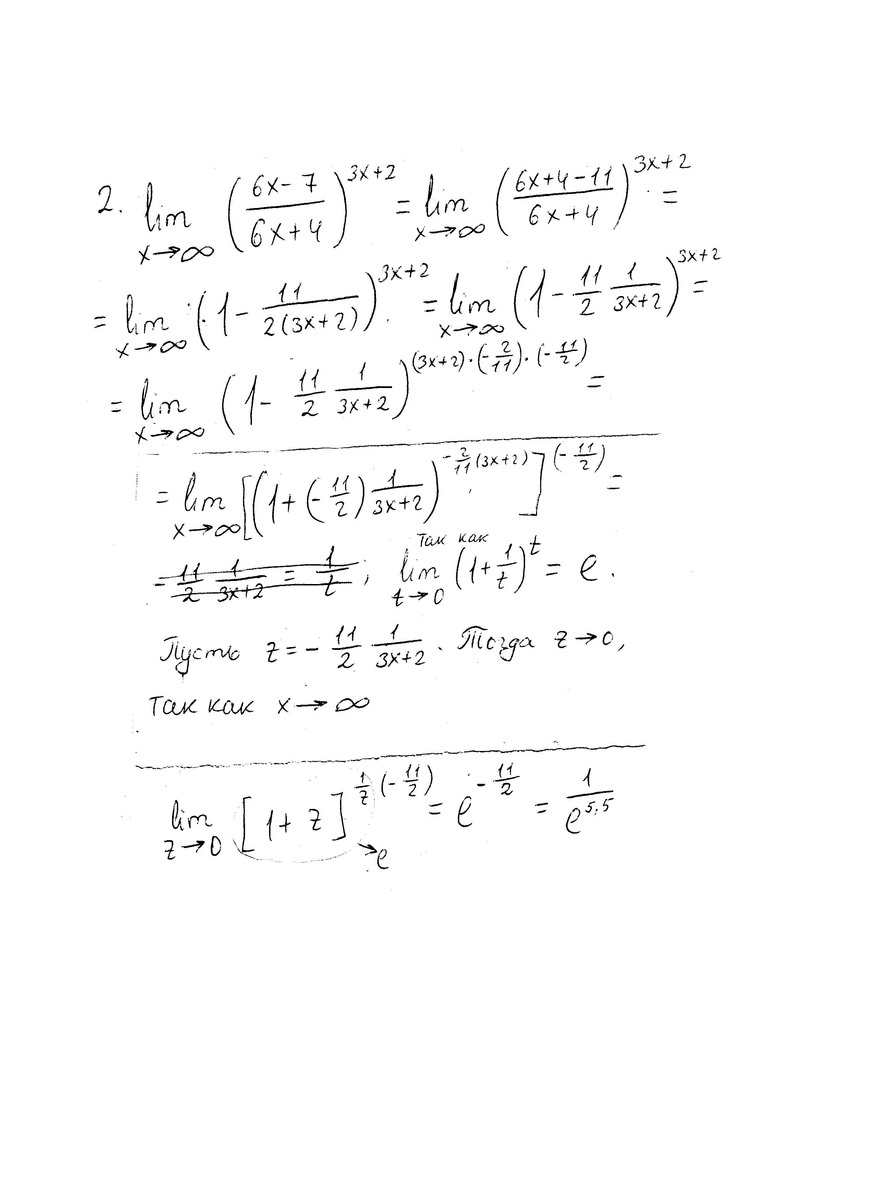 2. lim x→∞ ((6x-7)/(6x+4))^(3x+2) = lim x→∞ ((6x+4-11)/(6x+4))^(3x+2) =
= lim x→∞ (1 - 11/(2(3x+2)))^(3x+2) = lim x→∞ (1 - 11/2 1/(3x+2))^(3x+2) =
= lim x→∞ (1 - 11/2 1/(3x+2))^((3x+2)·(-2/11)·(-11/2)) =
= lim x→∞ [(1 + (-11/2) 1/(3x+2))^(-2/11 (3x+2))]^(-11/2) =
так как
-11/2 1/(3x+2) = 1/t ; lim t→0 (1 + 1/t)^t = e.
Пусть z = - 11/2 1/(3x+2). Тогда z→0,
так как x→∞
lim z→0 [1 + z]^(1/z (-11/2)) = e^(-11/2) = 1/e^(5,5)
→e